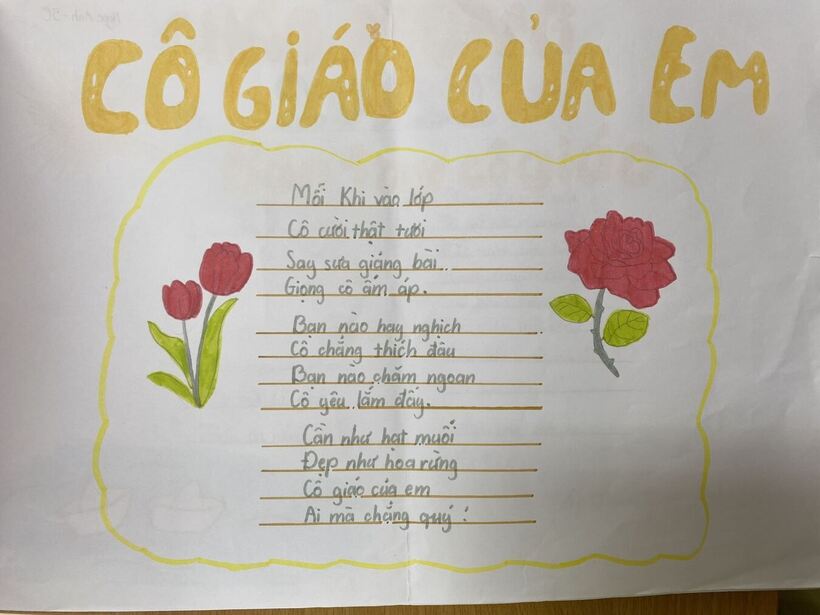 CÔ GIÁO CỦA EM
Mỗi Khi vào lớp
Cô cười thật tươi
Say sưa giảng bài..
Giọng cô ấm áp.
Bạn nào hay nghịch
Cô chẳng thích đâu
Bạn nào chăm ngoan
Cô yêu lắm đấy.
Cần như hạt muối
Đẹp như hoa rừng
Cô giáo của em
Ai mà chẳng quý !